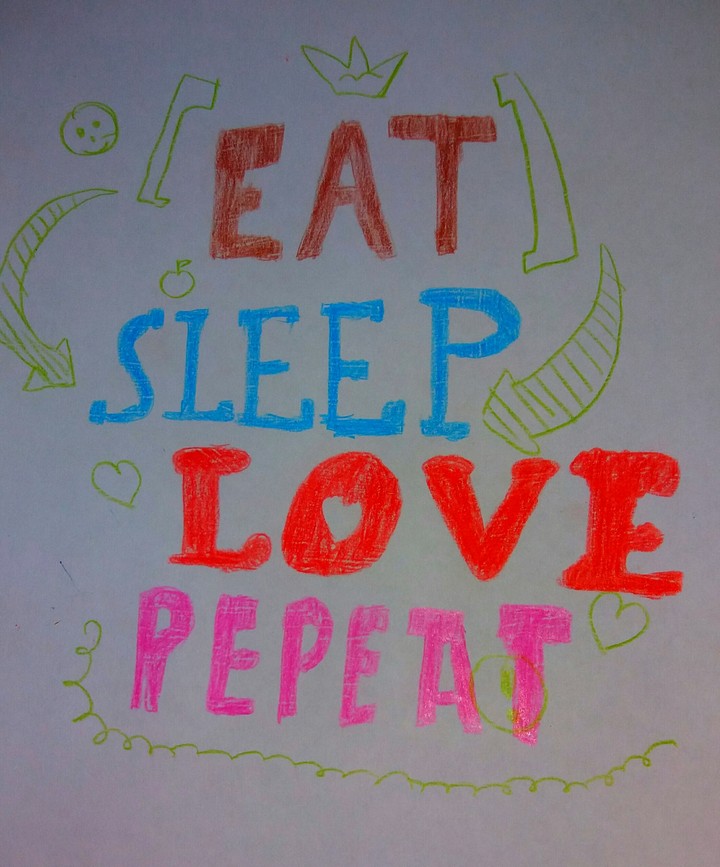 EAT
SLEEP
LOVE
PEPEAT